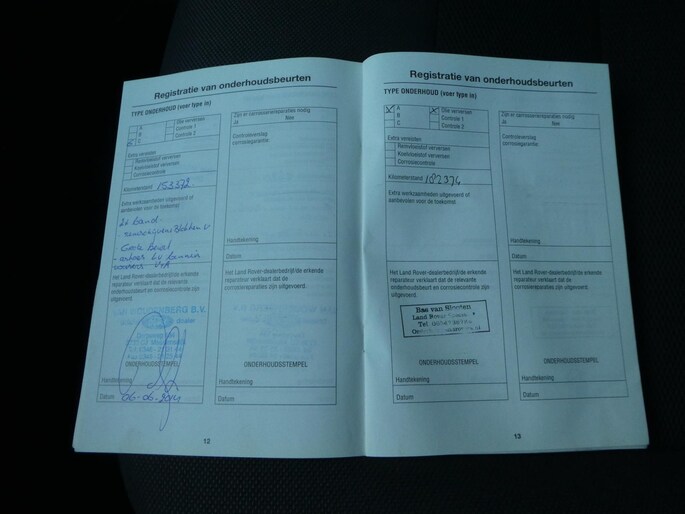 Registratie van onderhoudsbeurten
TYPE ONDERHOUD (voer type in)
A
B
C
Olie verversen
Controle 1
Controle 2
Extra vereisten
Remvloeistof verversen
Koelvloeistof verversen
Corrosiecontrole
Kilometerstand 153372
Extra werkzaamheden uitgevoerd of
aanbevolen voor de toekomst
Grote beurt
Het Land Rover-dealerbedrijf/de erkende
reparateur verklaart dat de relevante
onderhoudsbeurt en corrosiecontrole zijn
uitgevoerd.
B.V.
ONDERHOUDSSTEMPEL
Handtekening
Datum 06-06-2014
Zijn er corrosiereparaties nodig
Ja Nee
Controleverslag
corrosiegarantie:
Handtekening
Datum
Het Land Rover-dealerbedrijf/de erkende
reparateur verklaart dat de
corrosiereparaties zijn uitgevoerd.
ONDERHOUDSSTEMPEL
Handtekening
Datum
12
Registratie van onderhoudsbeurten
TYPE ONDERHOUD (voer type in)
A
B
C
Olie verversen
Controle 1
Controle 2
Extra vereisten
Remvloeistof verversen
Koelvloeistof verversen
Corrosiecontrole
Kilometerstand 182376
Extra werkzaamheden uitgevoerd of
aanbevolen voor de toekomst
Het Land Rover-dealerbedrijf/de erkende
reparateur verklaart dat de relevante
onderhoudsbeurt en corrosiecontrole zijn
uitgevoerd.
Bas van Slooten
Land Rover
Tel.
ONDERHOUDSSTEMPEL
Handtekening
Datum
Zijn er corrosiereparaties nodig
Ja Nee
Controleverslag
corrosiegarantie:
Handtekening
Datum
Het Land Rover-dealerbedrijf/de erkende
reparateur verklaart dat de
corrosiereparaties zijn uitgevoerd.
ONDERHOUDSSTEMPEL
Handtekening
Datum
13